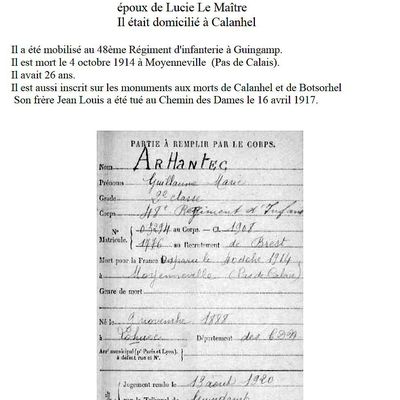 époux de Lucie Le Maître
Il était domicilié à Calanhel
Il a été mobilisé au 48ème Régiment d'infanterie à Guingamp.
Il est mort le 4 octobre 1914 à Moyenneville (Pas de Calais).
Il avait 26 ans.
Il est aussi inscrit sur les monuments aux morts de Calanhel et de Botsorhel
Son frère Jean Louis a été tué au Chemin des Dames le 16 avril 1917.
PARTIE À REMPLIR PAR LE CORPS.
Nom ARHANTEC
Prénoms Guillaume Marie
Grade 2e classe
Corps 48e Régiment d'Infan
N° 03294 au Corps. — Cl. 1908
Matricule. 1776 au Recrutement de Brest
Mort pour la France Disparu le 4 octobre 1914
à Moyenneville (Pas de Calais)
Genre de mort
Né le 9 novembre 1888
à Département des CDN
Arr' municipal (p' Paris et Lyon),
à défaut rue et N°.
Jugement rendu le 13 août 1920
par le Tribunal de Guingamp